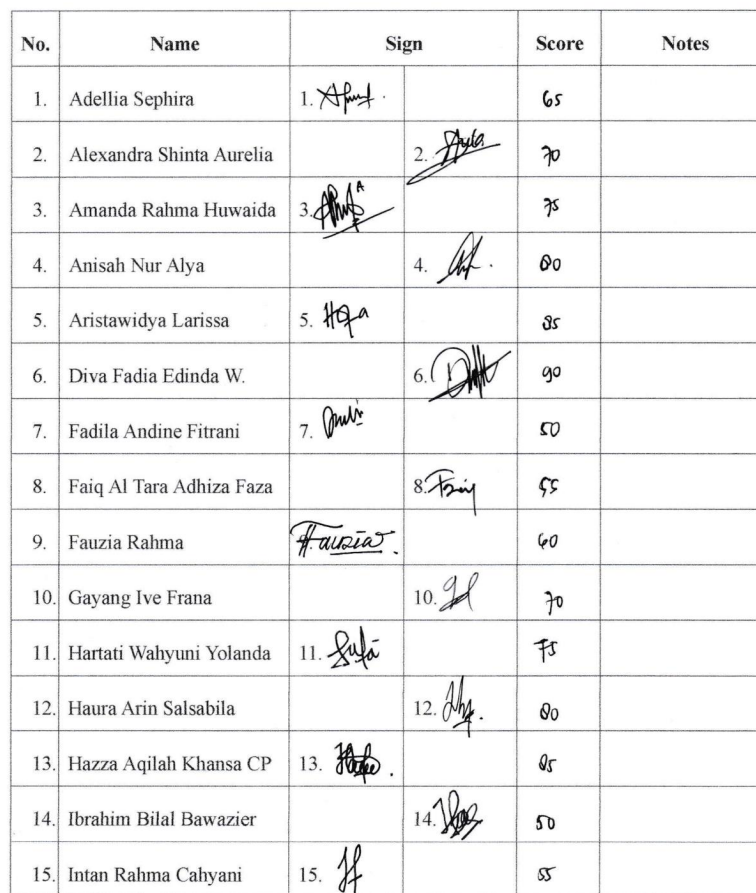 No. Name Sign Score Notes
1. Adellia Sephira 1. 65
2. Alexandra Shinta Aurelia 2. 70
3. Amanda Rahma Huwaida 3. 75
4. Anisah Nur Alya 4. 80
5. Aristawidya Larissa 5. 85
6. Diva Fadia Edinda W. 6. 90
7. Fadila Andine Fitrani 7. 50
8. Faiq Al Tara Adhiza Faza 8. 55
9. Fauzia Rahma Fauzia 60
10. Gayang Ive Frana 10. 70
11. Hartati Wahyuni Yolanda 11. 75
12. Haura Arin Salsabila 12. 80
13. Hazza Aqilah Khansa CP 13. 85
14. Ibrahim Bilal Bawazier 14. 50
15. Intan Rahma Cahyani 15. 55